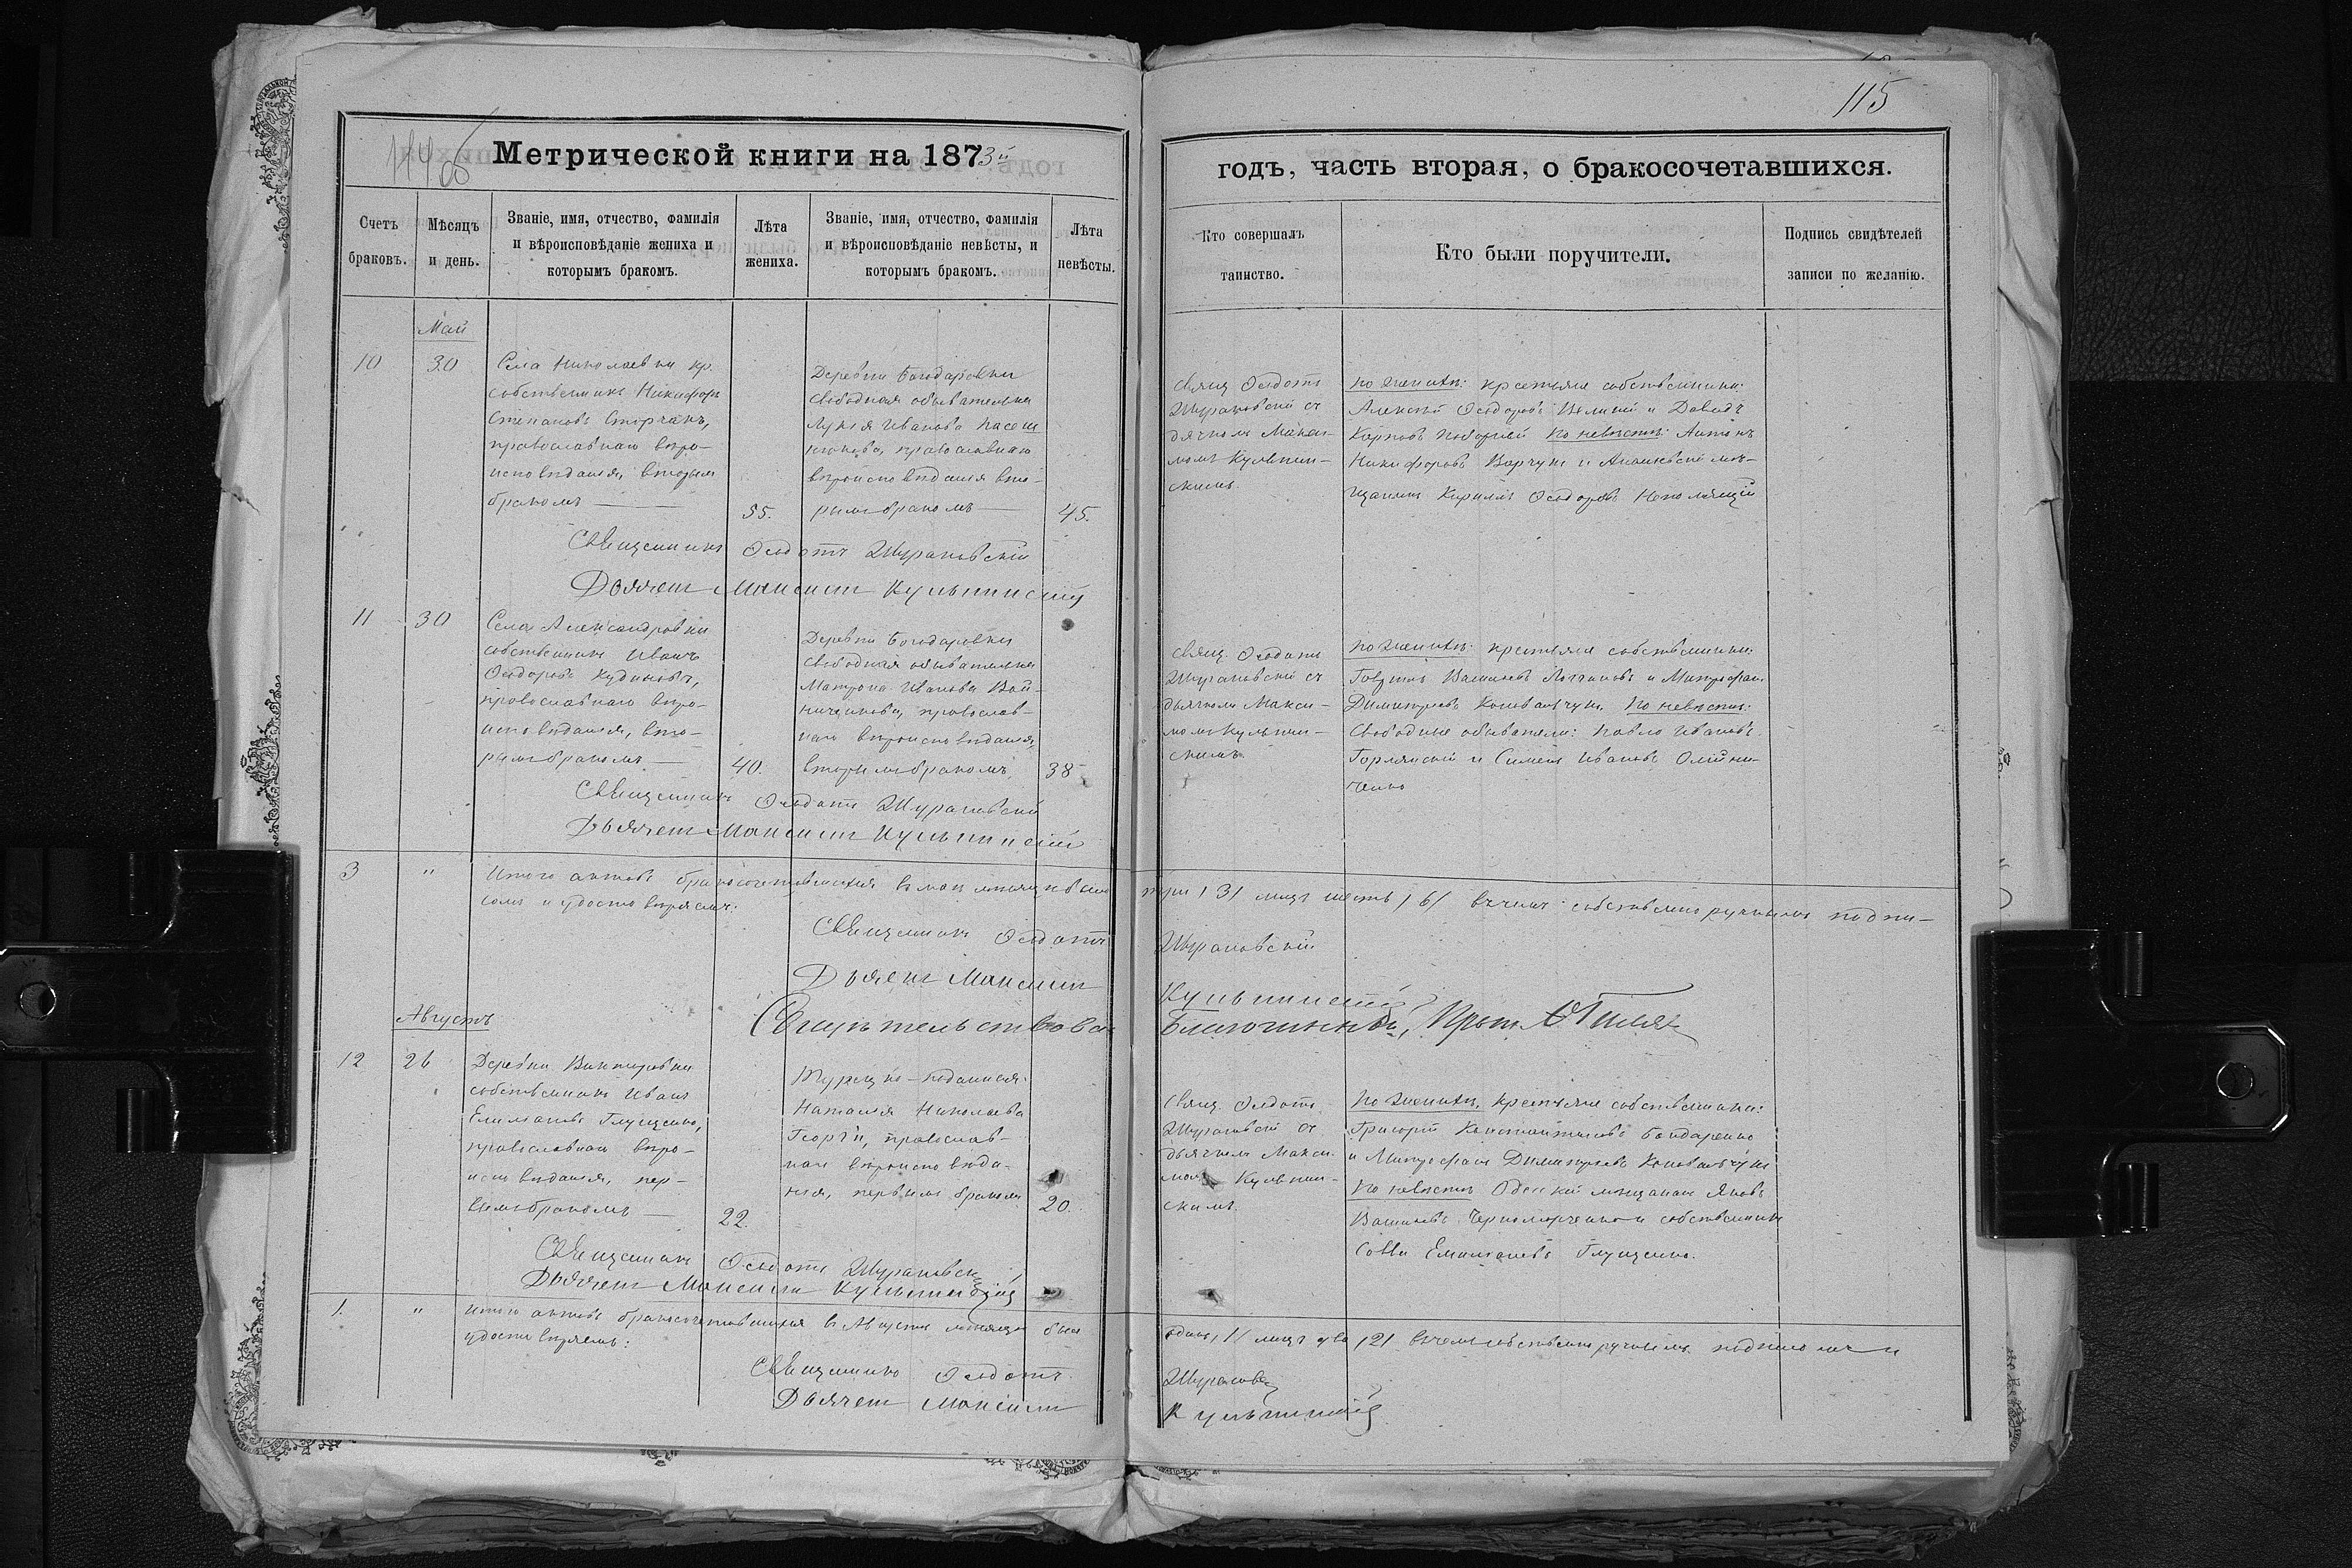 115
114 об
Метрической книги на 1873й
годъ, часть вторая, о бракосочетавшихся.
Счетъ браковъ.
Мѣсяцъ и день.
Званіе, имя, отчество, фамилія
и вѣроисповѣданіе жениха и
которымъ бракомъ.
Лѣта жениха.
Званіе, имя, отчество, фамилія
и вѣроисповѣданіе невѣсты, и
которымъ бракомъ.
Лѣта невѣсты.
Кто совершалъ
таинство.
Кто были поручители.
Подпись свидѣтелей
записи по желанію.
Май
10
30
Села Николаевки кр.
собственникъ Никифоръ
Степановъ Сторчакъ,
православнаго вѣро-
исповѣданія, вторымъ
бракомъ
55.
Деревни Богодаровки
свободная обывателька
Лукія Иванова
православнаго
вѣроисповѣданія вто-
рымъ бракомъ
45.
Свящ. Ѳеодотъ
Шурановскій съ
дьячкомъ Макси-
момъ Кульпин-
скимъ.
По женихѣ: крестьяне собственники:
Алексѣй Ѳеодоровъ и Давидъ
Карповъ По невѣстѣ: Антонъ
Никифоровъ и Ананьевскій мѣ-
щанинъ Кириллъ Ѳеодоровъ
Священникъ Ѳеодотъ Шурановскій
Дьячекъ Максимъ Кульпинскій
11
30
Села Александровки
собственникъ Иванъ
Ѳеодоровъ Кудиновъ,
православнаго вѣро-
исповѣданія, вто-
рымъ бракомъ
40.
Деревни Богодаровки
свободная обывателька
Матрона Иванова Вой-
ниченкова, православ-
наго вѣроисповѣданія,
вторымъ бракомъ
38
Свящ. Ѳеодотъ
Шурановскій съ
дьячкомъ Макси-
момъ Кульпин-
скимъ.
По женихѣ: крестьяне собственники:
Василіевъ и Митрофанъ
Димитріевъ Коновальчукъ. По невѣстѣ:
свободные обыватели: Павло Ивановъ
и Симеонъ Ивановъ Олійни-
ченко
Священникъ Ѳеодотъ Шурановскій
Дьячекъ Максимъ Кульпинскій
3
"
Итого актовъ бракосочетавшихся въ маѣ мѣсяцѣ было три /3/ лицъ шесть /6/ въ чемъ собственноручнымъ подпи-
сомъ и удостовѣряемъ:
Священникъ Ѳеодотъ Шурановскій
Дьячекъ Максимъ Кульпинскій
Свидѣтельствовалъ Благочинный, Прот.
Августъ
12
26
Деревни Викторовки
собственникъ Иванъ
Емиліановъ Глущенко,
православнаго вѣро-
исповѣданія, пер-
вымъ бракомъ
22.
Турецко-подданная
Наталія Николаева
Георгіи, православ-
наго вѣроисповѣда-
нія, первымъ бракомъ
20.
Свящ. Ѳеодотъ
Шурановскій съ
дьячкомъ Макси-
момъ Кульпин-
скимъ.
По женихѣ, крестьяне собственники:
Григорій Константиновъ Бондаренко
и Митрофанъ Димитріевъ Коновальчукъ
По невѣстѣ Одесскій мѣщанинъ Яковъ
Василіевъ и собственникъ
Савва Емиліановъ Глущенко.
Священникъ Ѳеодотъ Шурановскій
Дьячекъ Максимъ Кульпинскій
1.
"
Итого актовъ бракосочетавшихся въ Августѣ мѣсяцѣ былъ одинъ /1/ лицъ два /2/ въ чемъ собственноручнымъ подписомъ и
удостовѣряемъ:
Священникъ Ѳеодотъ Шурановскій
Дьячекъ Максимъ Кульпинскій